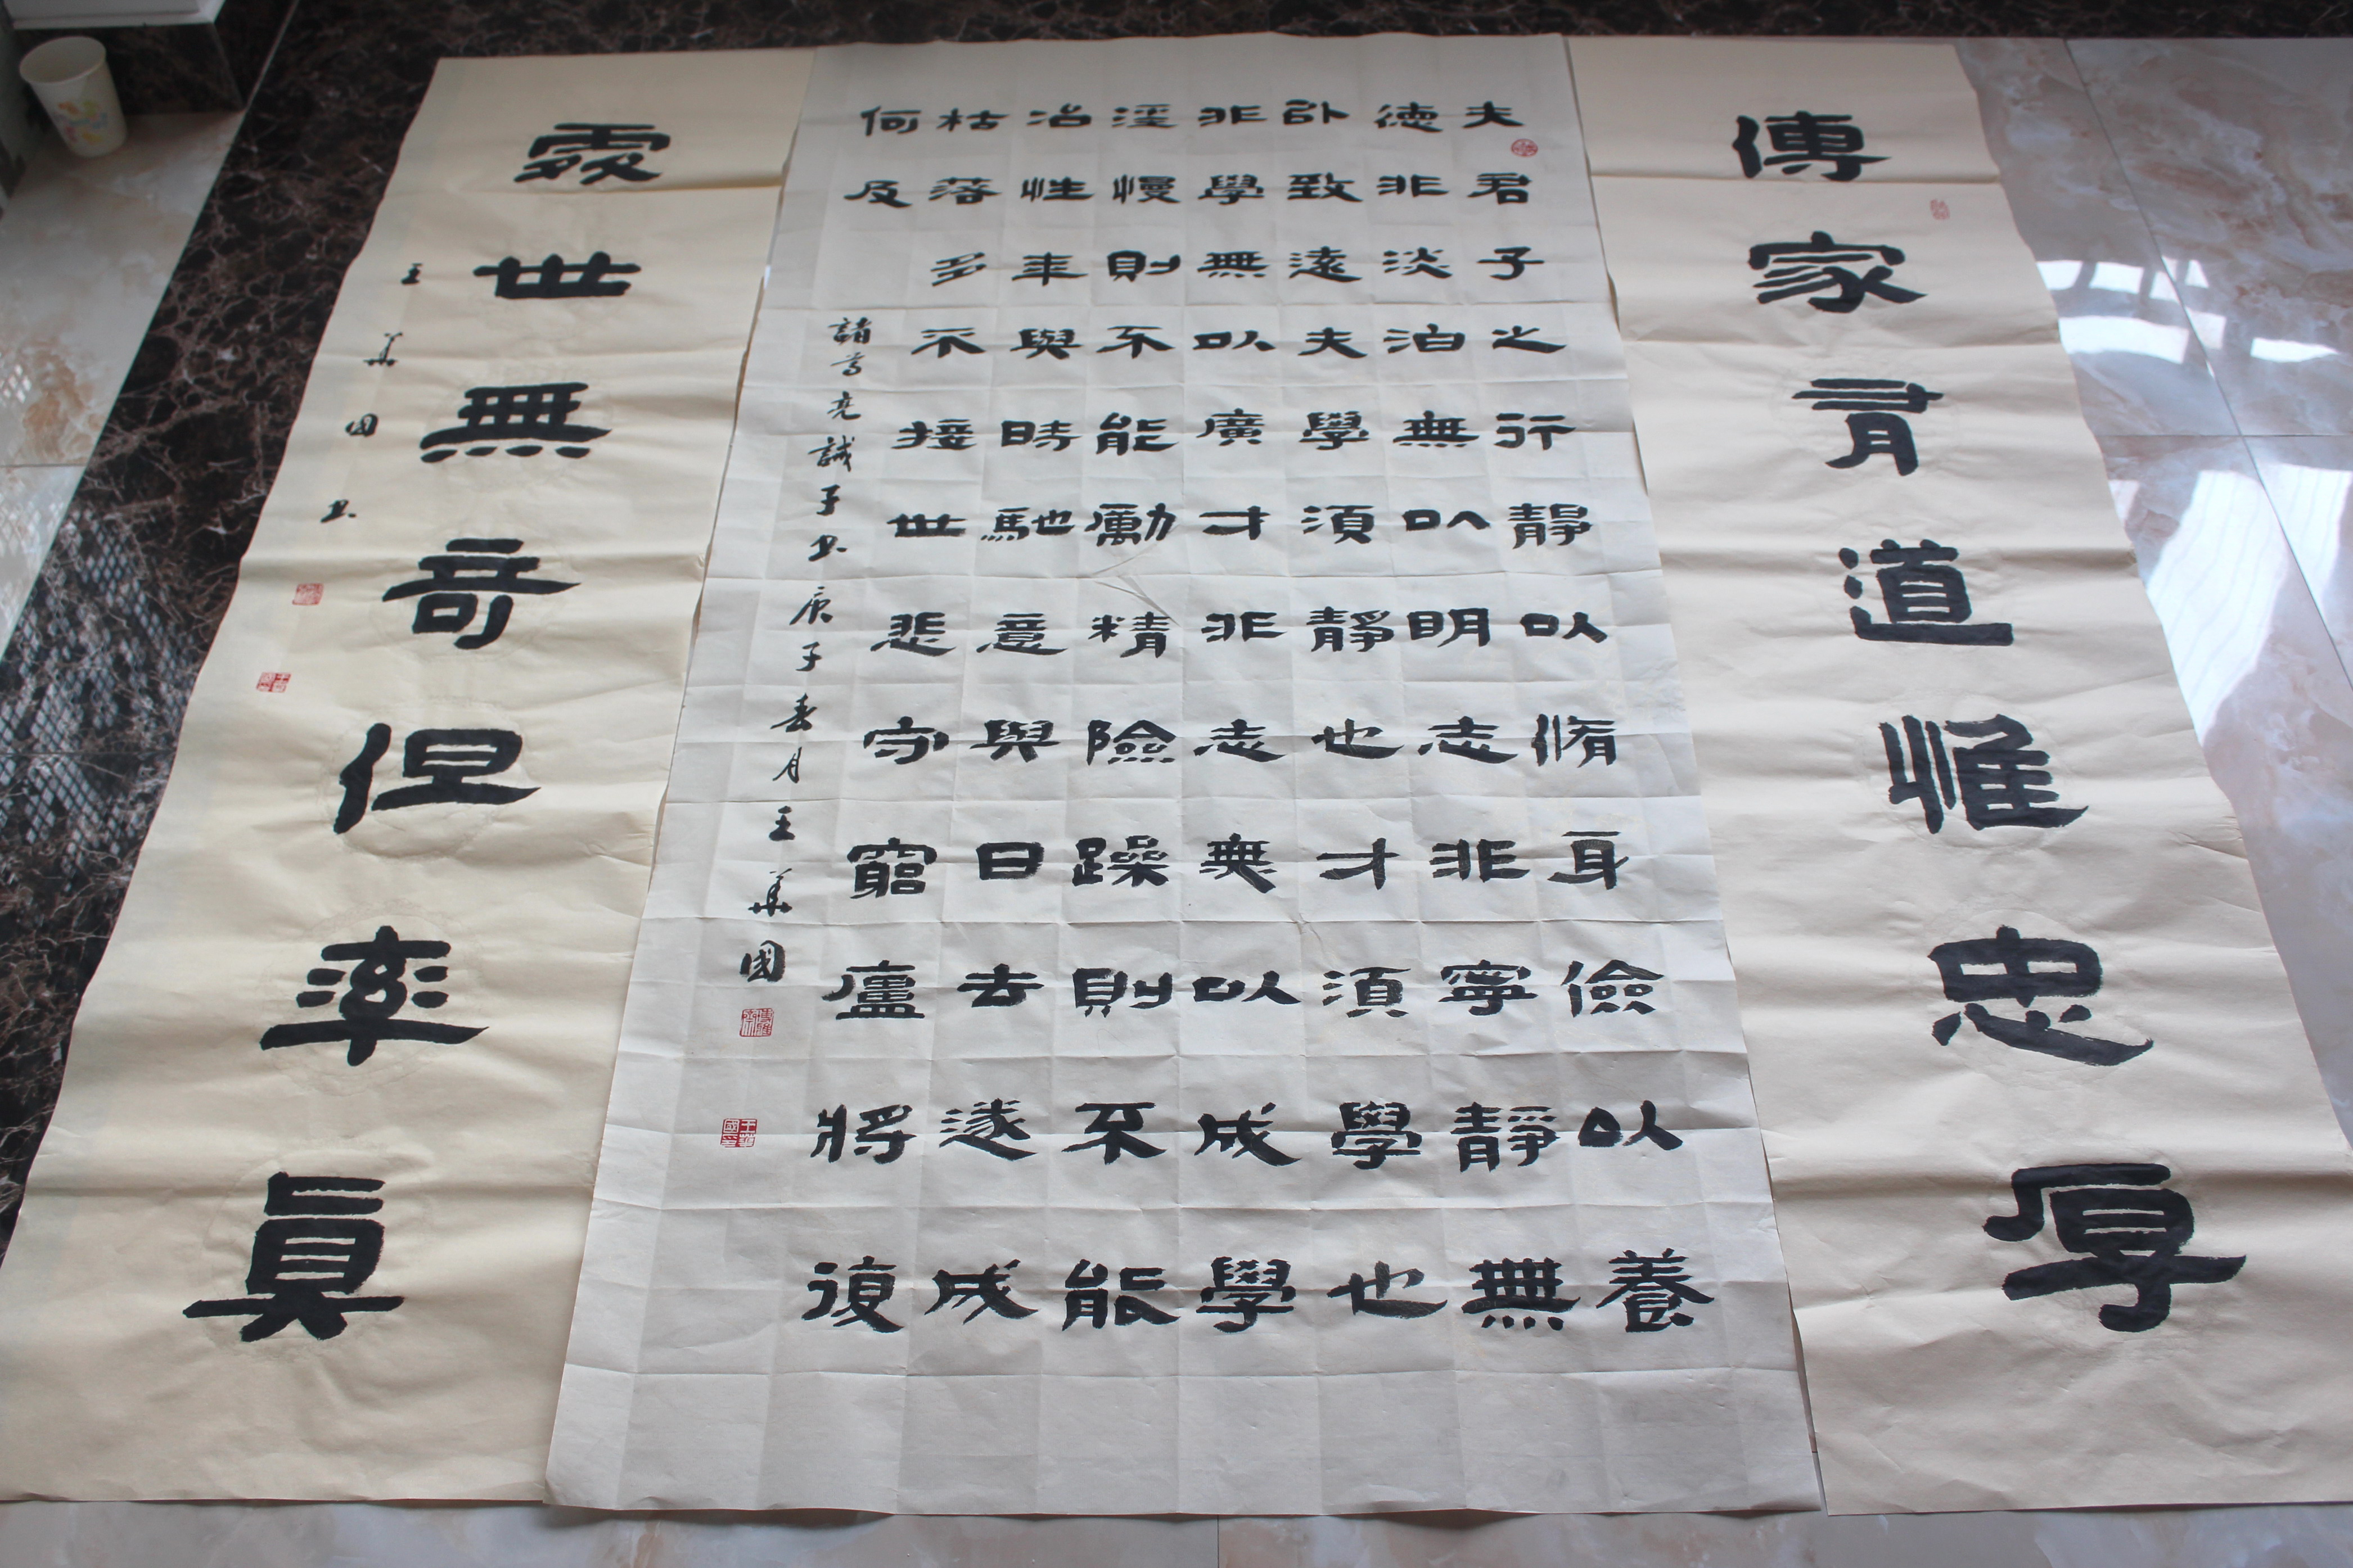 傳家有道惟忠厚
夫君子之行靜以脩身儉以養
德非淡泊無以明志非寧靜無
以致遠夫學須靜也才須學也
非學無以廣才非志無以成學
淫慢則不能勵精險躁則不能
冶性年與時馳意與日去遂成
枯落多不接世悲守窮廬將復
何及
諸葛亮誡子书庚子春月王華國
處世無奇但率眞
王華國书